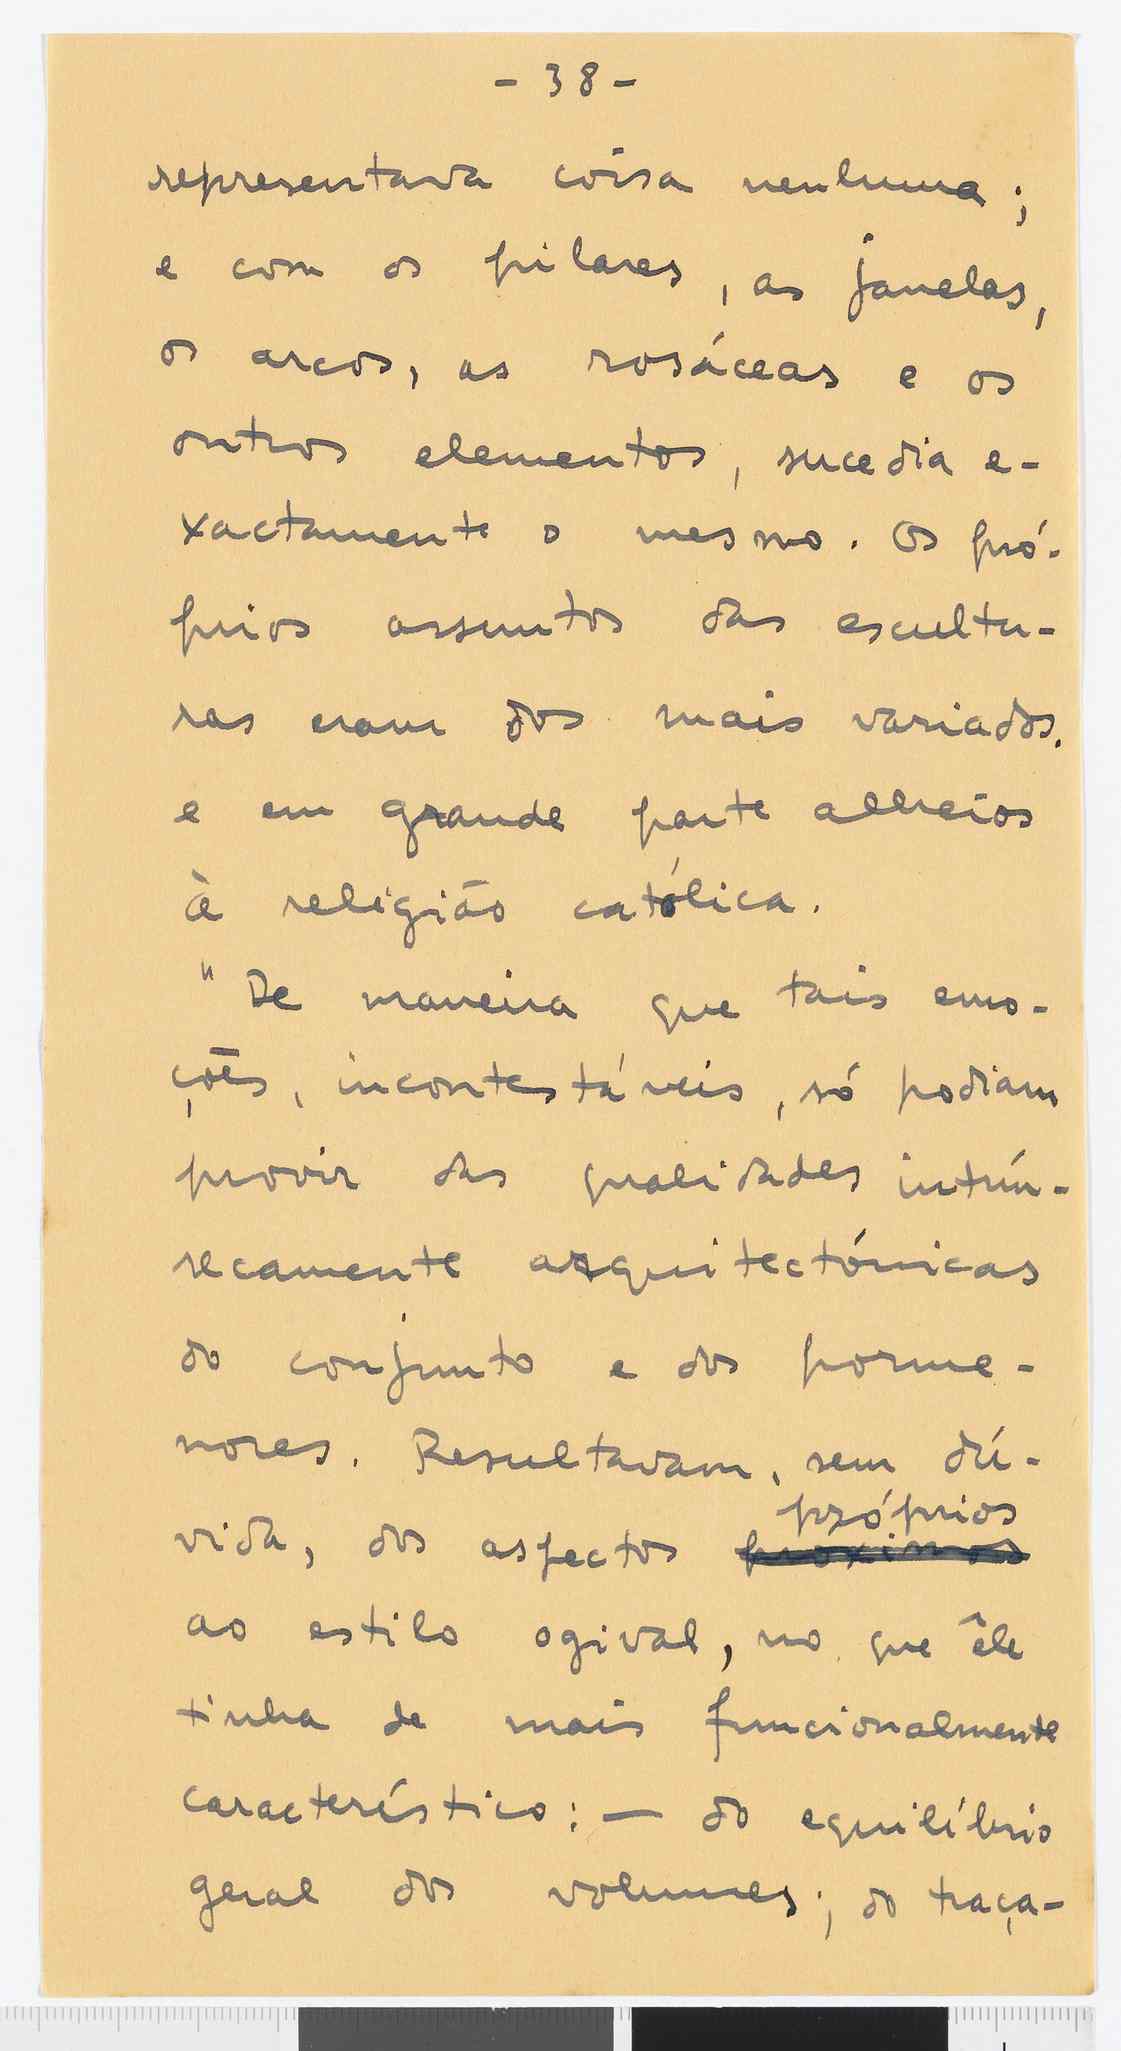 - 38 -
representava coisa nenhuma;
e com os pilares, as janelas,
os arcos, as rosáceas e os
outros elementos, sucedia e-
xactamente o mesmo. Os pró-
prios assuntos das escultu-
ras eram dos mais variados,
e em grande parte alheios
à religião católica.
"De maneira que tais emo-
ções, incontestáveis, só podiam
provir das qualidades intrín-
secamente arquitectónicas
do conjunto e dos porme-
nores. Resultavam, sem dú-
próprios
vida, dos aspectos próximos
ao estilo ogival, no que êle
tinha de mais funcionalmente
característico: — do equilíbrio
geral dos volumes; do traça-